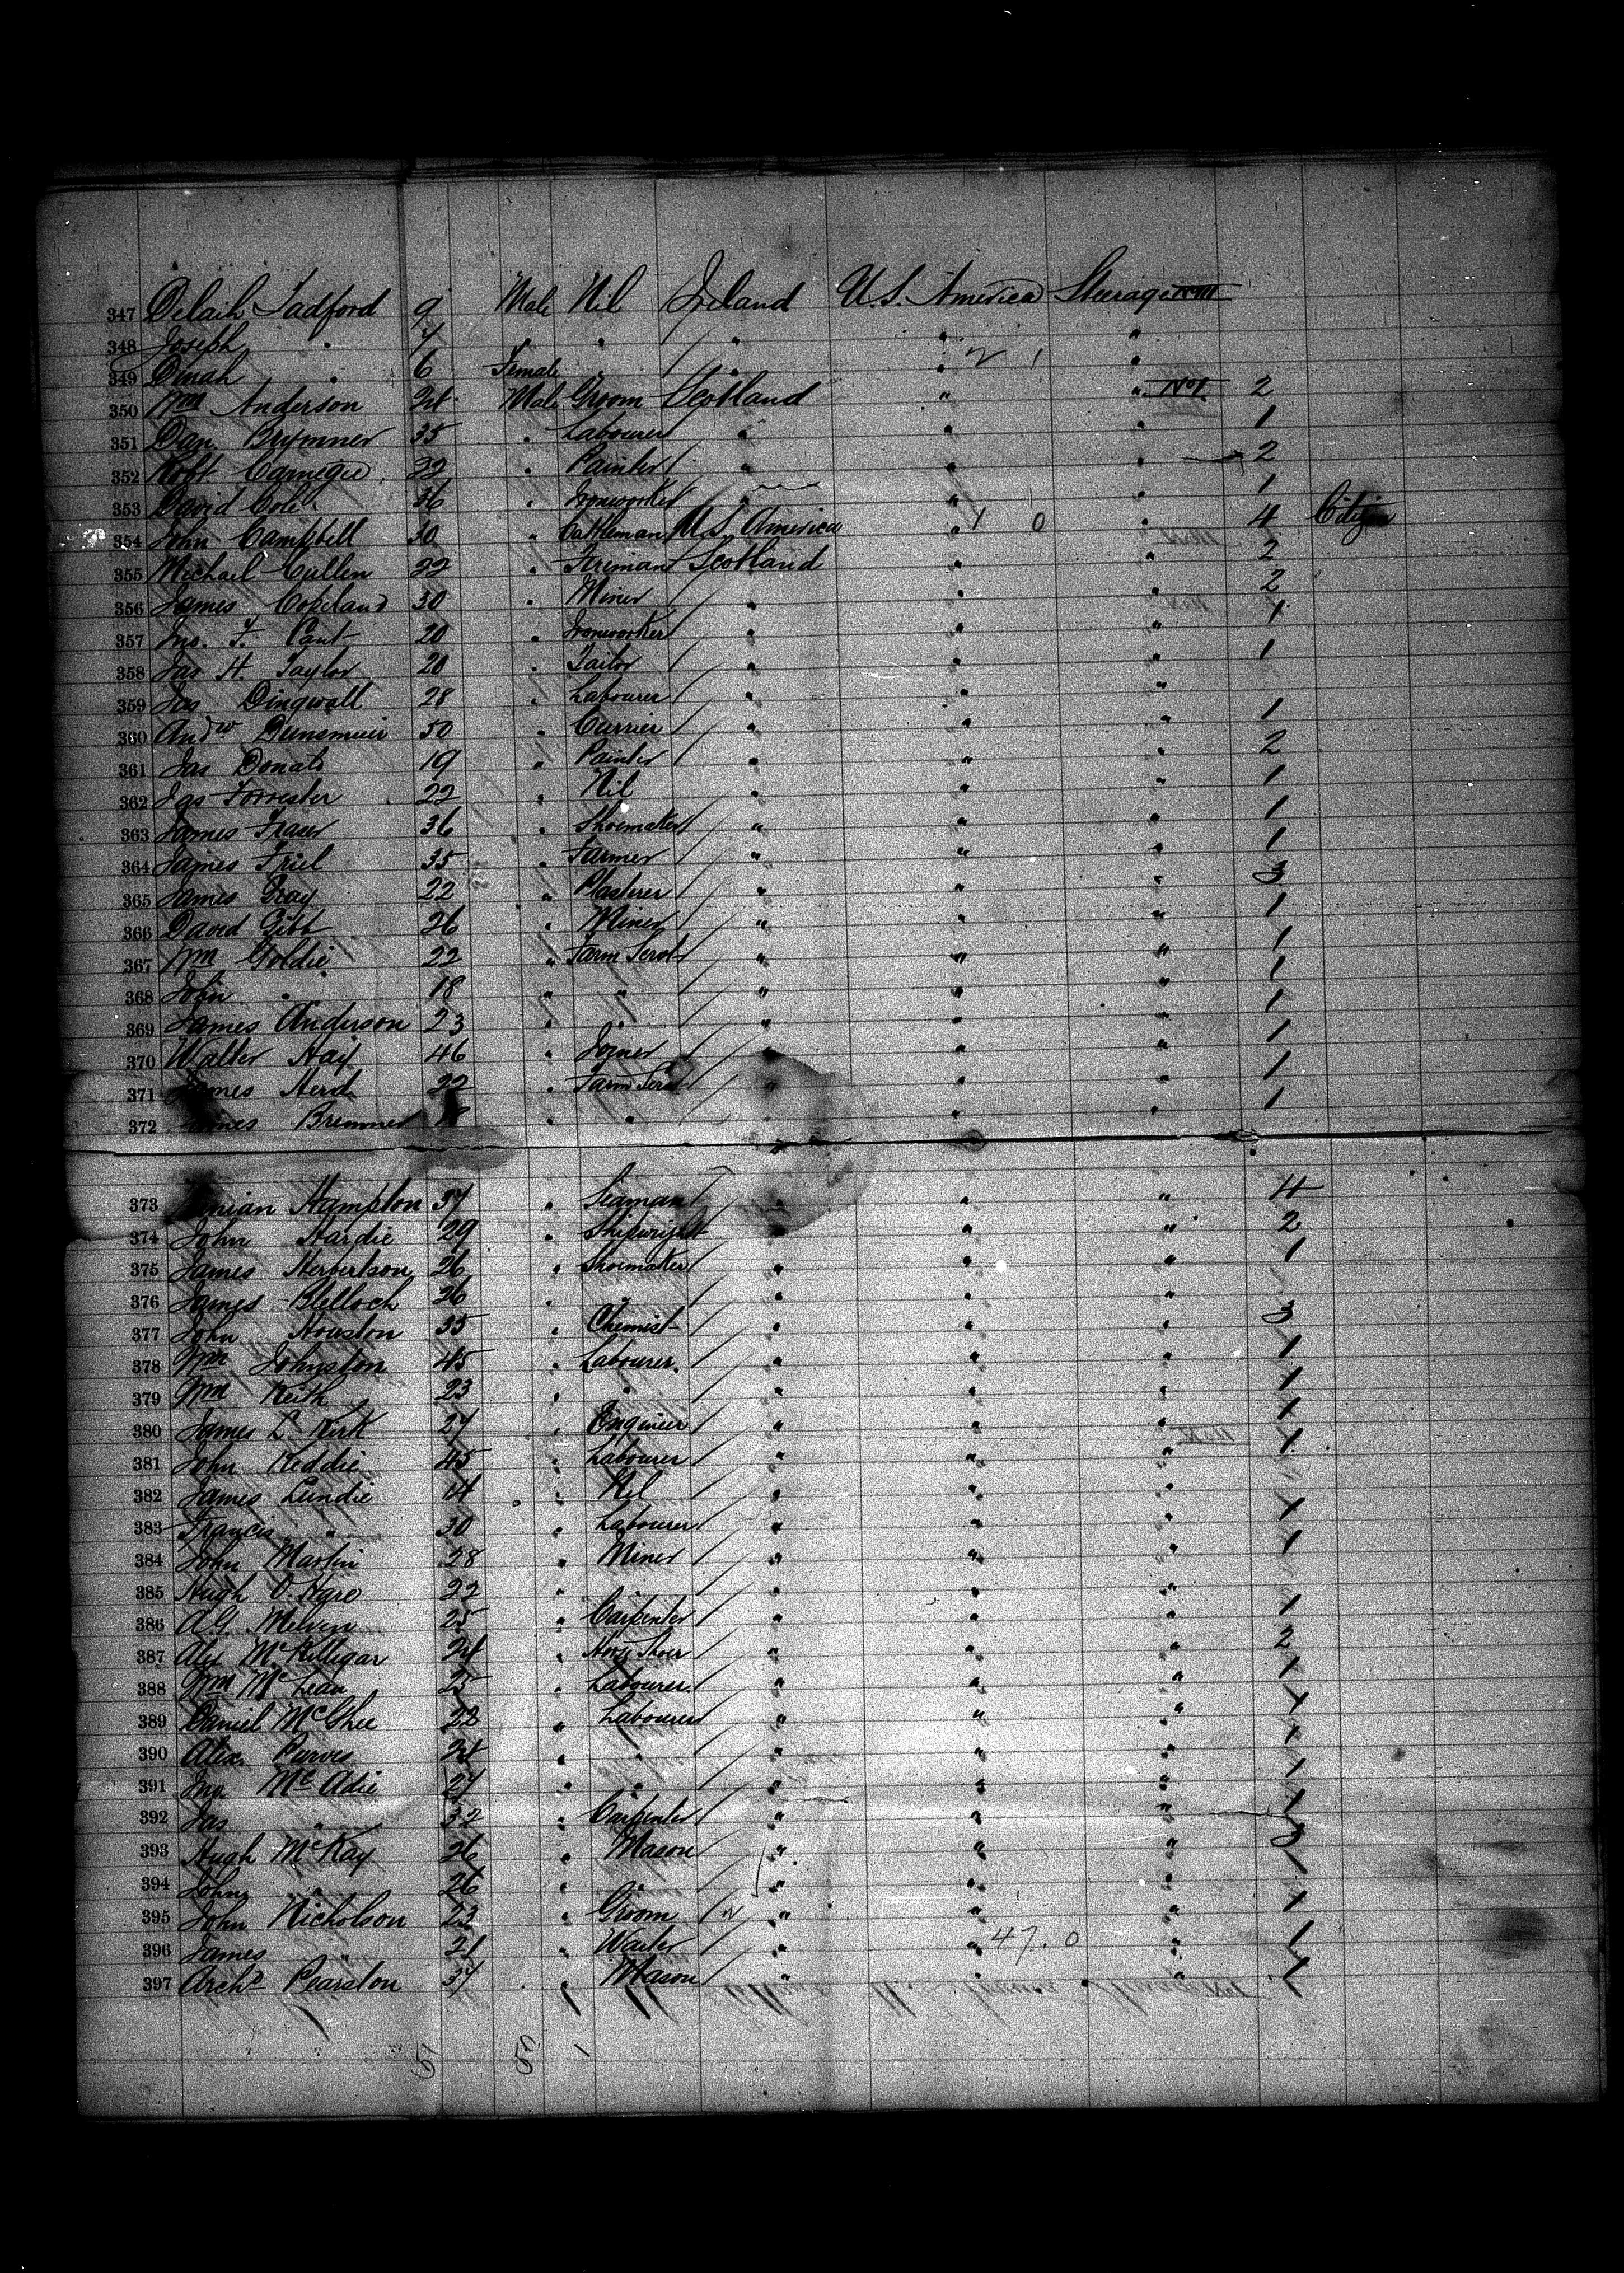 347 Delaih Tadford 9 Male Nil Ireland U.S. America Steerage
348 Joseph " 7 " " " "
349 Dinah " 6 Female " " " " 2 1
350 Wm Anderson 24 Male Groom Scotland " " No 1 2
351 Dan Brymner 35 " Labourer " " " 1
352 Robt Carnegie 32 " Painter " " " 2
353 David Cole 36 " Ironworker " " " 1
354 John Campbell 30 " Cattleman U.S. America " 1 0 " 4 Citizen
355 Michael Cullen 22 " Fireman Scotland " " 2
356 James Copeland 30 " Miner " " " 2
357 Jno. F. Cant 20 " Ironworker " " " 1
358 Jas H. Taylor 20 " Tailor " " " 1
359 Jas Dingwall 28 " Labourer " " "
360 Andw Dunsmuir 50 " Currier " " " 1
361 Jas Donald 19 " Painter " " " 2
362 Jas Forrester 22 " Nil " " " 1
363 James Fraser 36 " Shoemaker " " " 1
364 James Friel 35 " Farmer " " " 1
365 James Gray 22 " Plasterer " " " 3
366 David Gibb 26 " Miner " " " 1
367 Wm Goldie 22 " Farm Servt " " " 1
368 John " 18 " " " " " 1
369 James Anderson 23 " " " " 1
370 Walter Hay 46 " Joiner " " " 1
371 James Herd 22 " Farm Servt " " " 1
372 James Bremner " " " " 1
373 Hampton 37 " Seaman " " " 4
374 John Hardie 29 " Shipwright " " " 2
375 James Herbertson 26 " Shoemaker " " " 1
376 James Blelloch 26 " " " " "
377 John Houston 35 " Chemist " " " 3
378 Wm Johnston 45 " Labourer " " " 1
379 Wm Keith 23 " " " " " 1
380 James L Kirk 27 " Engineer " " " 1
381 John Keddie 45 " Labourer " " " 1
382 James Lundie 14 " Nil " " "
383 Francis " 30 " Labourer " " " 1
384 John Martin 28 " Miner " " " 1
385 Hugh O. Hare 22 " " " "
386 A.G. Melven 25 " Carpenter " " " 1
387 Alex McKilligar 24 " Horse Shoer " " " 2
388 Wm McLean 25 " Labourer " " " 1
389 Daniel McGhee 22 " Labourer " " " 1
390 Alex. Purves 24 " " " " " 1
391 Jno. McAdie 27 " " " " " 1
392 Jas " 32 " Carpenter " " " 1
393 Hugh McKay 26 " Mason " " " 3
394 John " 26 " " " " " 1
395 John Nicholson 23 " Groom " " " 1
396 James 21 " Waiter " " 47. 0 " 1
397 Archd Pearston 37 " Mason " " " 1